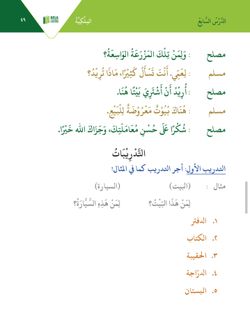 الدَّرْسُ السَّابِعُ
المِلْكِيَّةُ
٤٩
مصلح : وَلِمَنْ تِلْكَ المَزْرَعَةُ الوَاسِعَةُ؟
مسلم : لِعَمِّي، أَنْتَ تَسْأَلُ كَثِيْرًا، مَاذَا تُرِيْدُ؟
مصلح : أُرِيْدُ أَنْ أَشْتَرِيَ بَيْتًا هُنَا.
مسلم : هُنَاكَ بُيُوْتٌ مَعْرُوْضَةٌ لِلْبَيْعِ.
مصلح : شُكْرًا عَلَى حُسْنِ مُعَامَلَتِكَ، وَجَزَاكَ اللّٰه خَيْرًا.
التَّدْرِيْبَاتُ
التدريب الأول: أجر التدريب كما في المثال:
مثال : (البيت) (السيارة)
لِمَنْ هَذَا البَيْتُ؟ لِمَنْ هَذِهِ السَّيَّارَةُ؟
١. الدفتر
٢. الكتاب
٣. الحقيبة
٤. الدراجة
٥. البستان